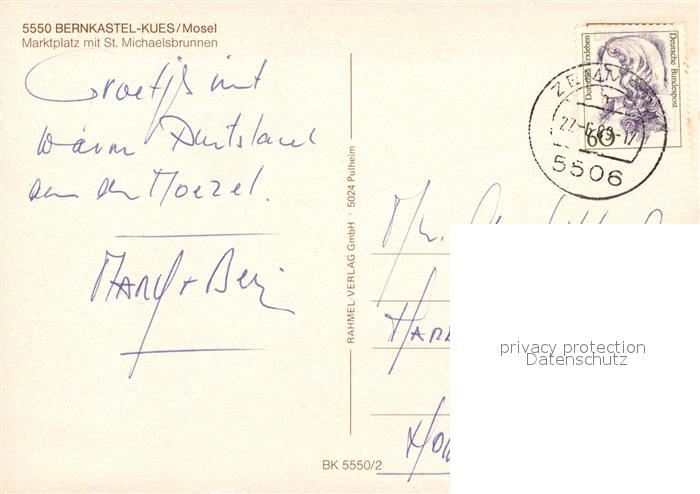 5550 BERNKASTEL-KUES/Mosel
Marktplatz mit St. Michaelsbrunnen
Groetjes uit
warm Duitsland
aan de Moezel.
Deutsche Bundespost
Dorothea Erxleben
60
27.-6.89-17
5506
RAHMEL-VERLAG GmbH · 5024 Pulheim
privacy protection
Datenschutz
BK 5550/2